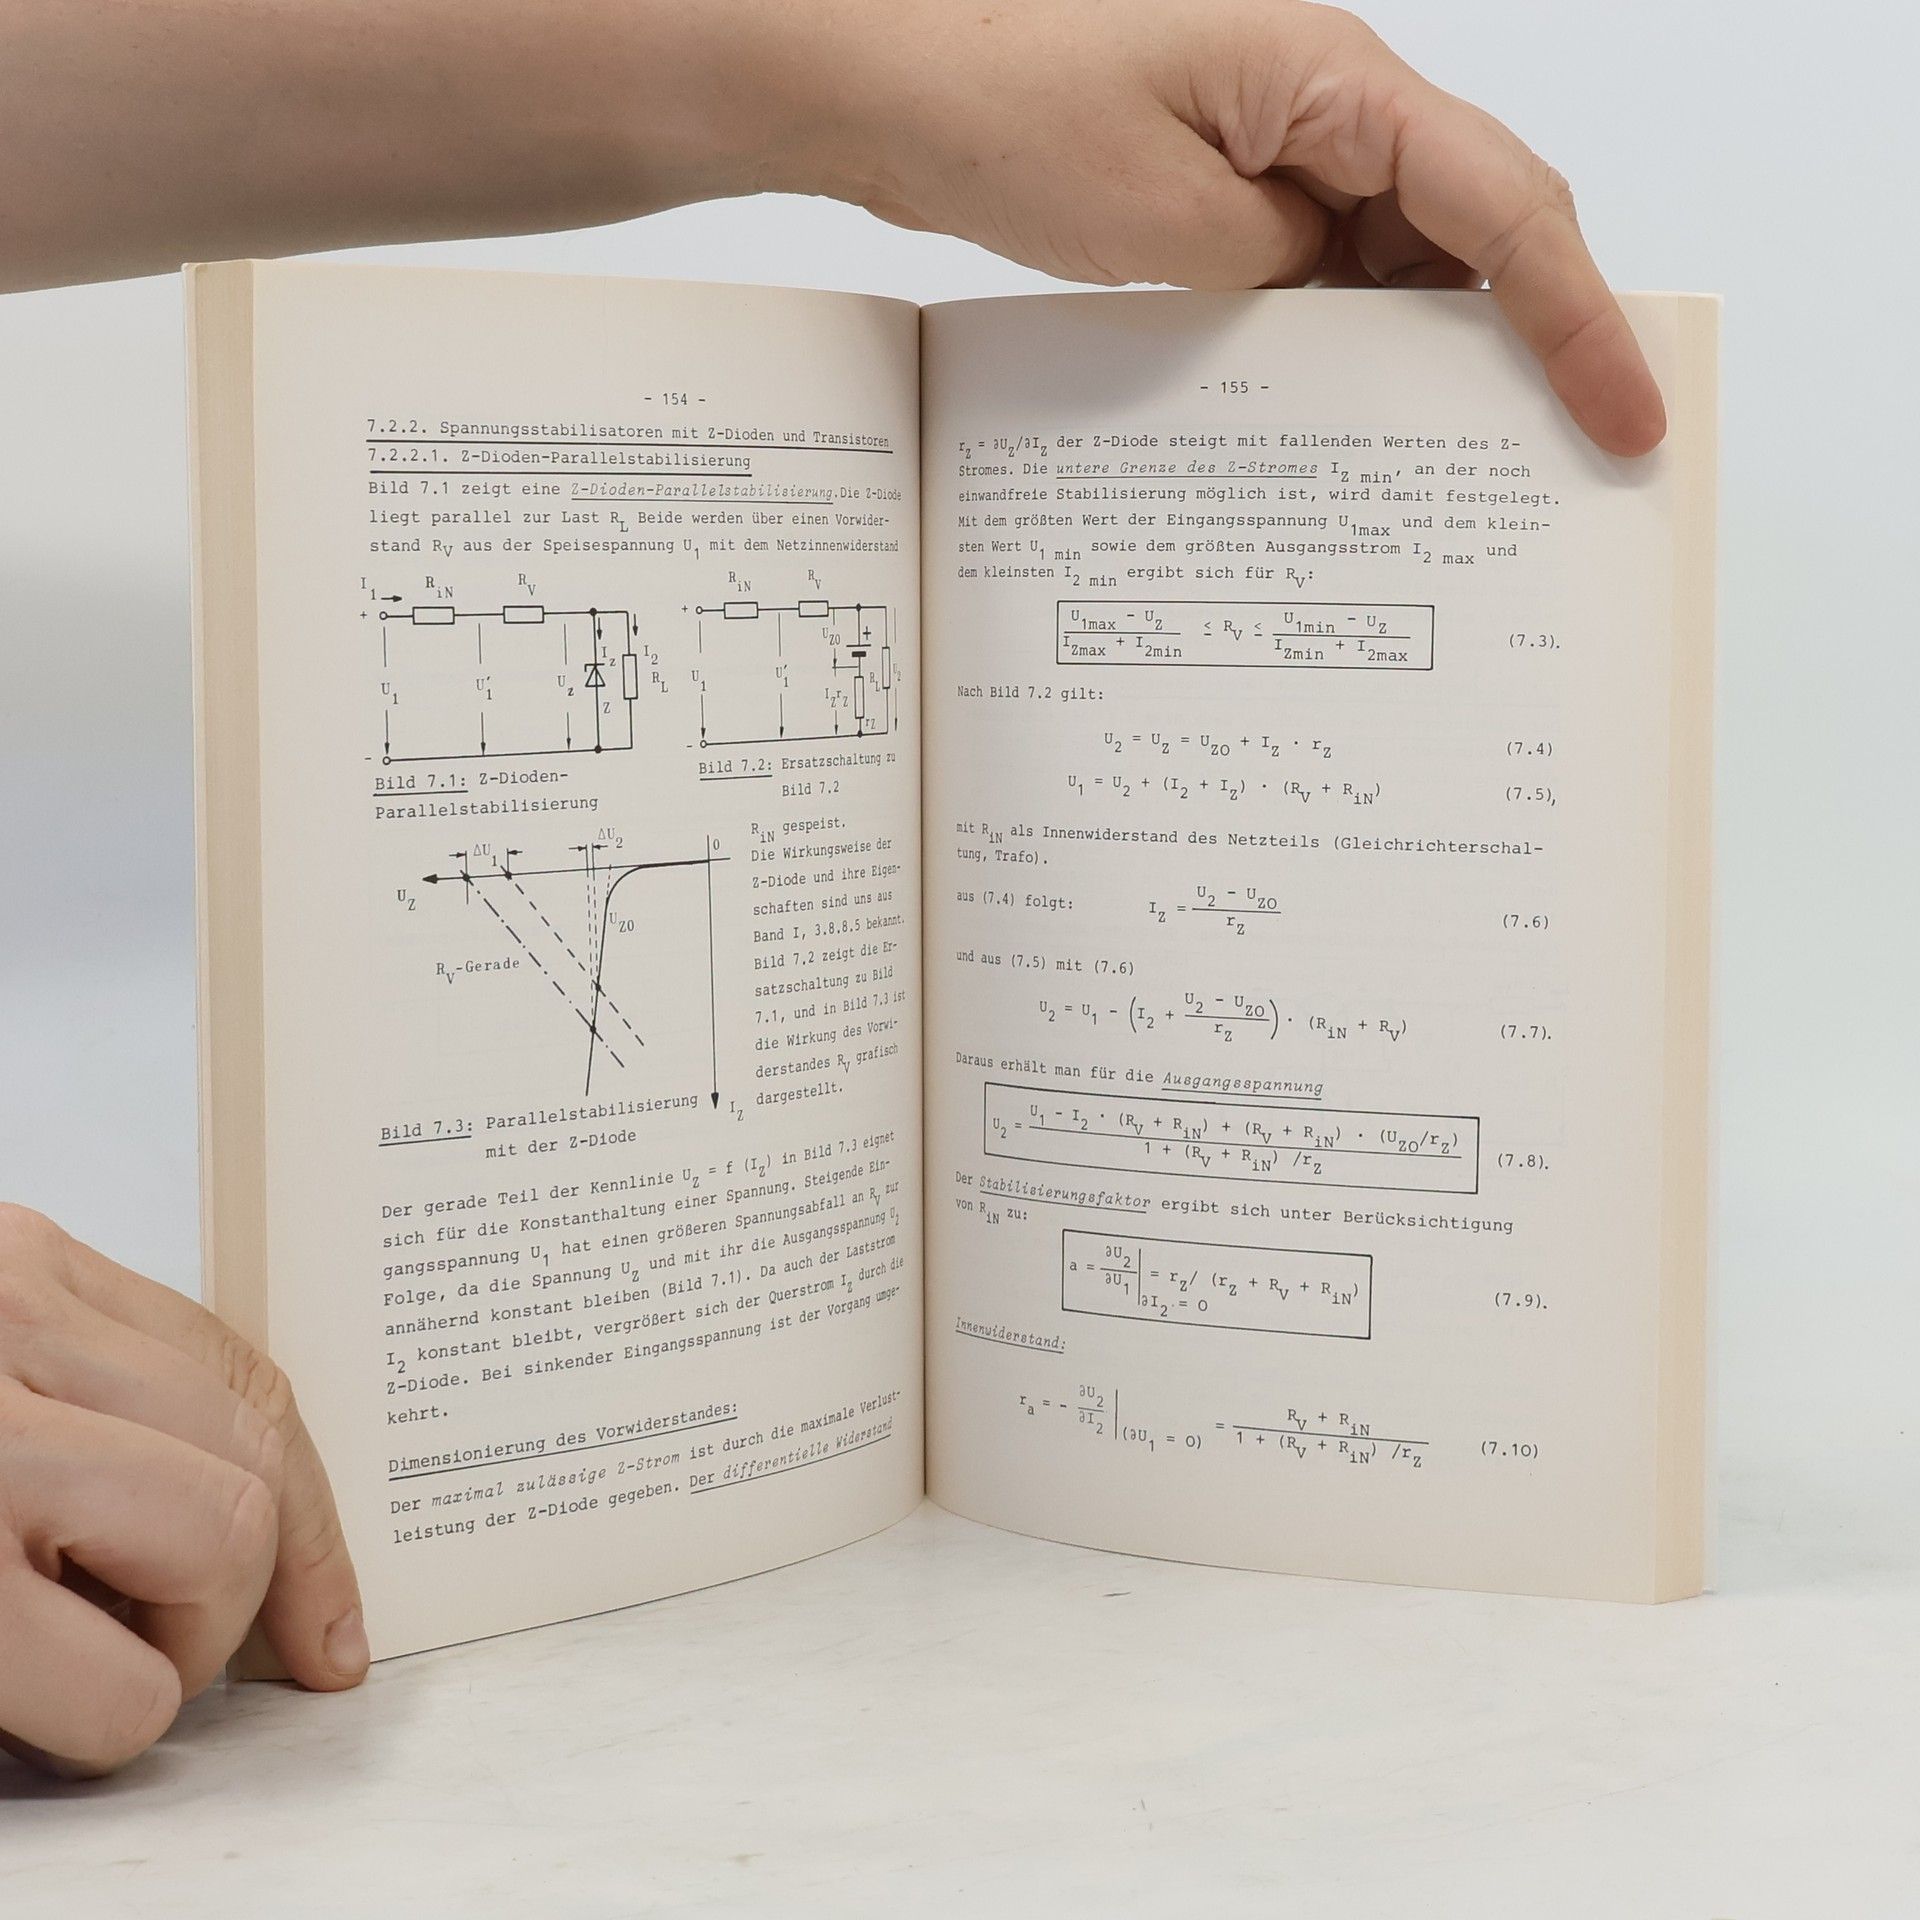 - 154 -
7.2.2. Spannungsstabilisatoren mit Z-Dioden und Transistoren
7.2.2.1. Z-Dioden-Parallelstabilisierung
Bild 7.1 zeigt eine Z-Dioden-Parallelstabilisierung.Die Z-Diode
liegt parallel zur Last R_L Beide werden über einen Vorwider-
stand R_V aus der Speisespannung U_1 mit dem Netzinnenwiderstand
I_1 R_iN R_V
+
I_z I_2
U_1 U'_1 U_z R_L
Z
-
R_iN R_V
+
U_ZO +
U_1 U'_1 R_L U_2
I_Z r_Z
r_Z
-
Bild 7.1: Z-Dioden-
Parallelstabilisierung
Bild 7.2: Ersatzschaltung zu
Bild 7.2
ΔU_1 ΔU_2 0
U_Z
U_ZO
R_V-Gerade
I_Z
Bild 7.3: Parallelstabilisierung
mit der Z-Diode
R_iN gespeist.
Die Wirkungsweise der
Z-Diode und ihre Eigen-
schaften sind uns aus
Band I, 3.8.8.5 bekannt.
Bild 7.2 zeigt die Er-
satzschaltung zu Bild
7.1, und in Bild 7.3 ist
die Wirkung des Vorwi-
derstandes R_V grafisch
dargestellt.
Der gerade Teil der Kennlinie U_Z = f (I_Z) in Bild 7.3 eignet
sich für die Konstanthaltung einer Spannung. Steigende Ein-
gangsspannung U_1 hat einen größeren Spannungsabfall an R_V zur
Folge, da die Spannung U_Z und mit ihr die Ausgangsspannung U_2
annähernd konstant bleiben (Bild 7.1). Da auch der Laststrom
I_2 konstant bleibt, vergrößert sich der Querstrom I_Z durch die
Z-Diode. Bei sinkender Eingangsspannung ist der Vorgang umge-
kehrt.
Dimensionierung des Vorwiderstandes:
Der maximal zulässige Z-Strom ist durch die maximale Verlust-
leistung der Z-Diode gegeben. Der differentielle Widerstand
- 155 -
r_Z = ∂U_Z/∂I_Z der Z-Diode steigt mit fallenden Werten des Z-
Stromes. Die untere Grenze des Z-Stromes I_Z min, an der noch
einwandfreie Stabilisierung möglich ist, wird damit festgelegt.
Mit dem größten Wert der Eingangsspannung U_1max und dem klein-
sten Wert U_1 min sowie dem größten Ausgangsstrom I_2 max und
dem kleinsten I_2 min ergibt sich für R_V:
(U_1max - U_Z)/(I_Zmax + I_2min) ≤ R_V ≤ (U_1min - U_Z)/(I_Zmin + I_2max) (7.3).
Nach Bild 7.2 gilt:
U_2 = U_Z = U_ZO + I_Z · r_Z (7.4)
U_1 = U_2 + (I_2 + I_Z) · (R_V + R_iN) (7.5),
mit R_iN als Innenwiderstand des Netzteils (Gleichrichterschal-
tung, Trafo).
aus (7.4) folgt: I_Z = (U_2 - U_ZO)/r_Z (7.6)
und aus (7.5) mit (7.6)
U_2 = U_1 - (I_2 + (U_2 - U_ZO)/r_Z) · (R_iN + R_V) (7.7).
Daraus erhält man für die Ausgangsspannung
U_2 = (U_1 - I_2 · (R_V + R_iN) + (R_V + R_iN) · (U_ZO/r_Z))/(1 + (R_V + R_iN) /r_Z) (7.8).
Der Stabilisierungsfaktor ergibt sich unter Berücksichtigung
von R_iN zu:
a = ∂U_2/∂U_1 |∂I_2 = 0 = r_Z/ (r_Z + R_V + R_iN) (7.9).
Innenwiderstand:
r_a = - ∂U_2/∂I_2 |(∂U_1 = 0) = (R_V + R_iN)/(1 + (R_V + R_iN) /r_Z) (7.10)